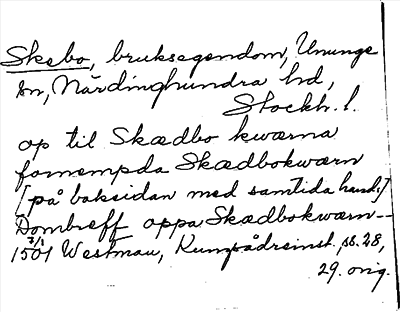 Skebo, bruksegendom, Ununge
sn, Närdinghundra hd,
Stockh. l.
op til Skædbo kwærna
fornempda Skædbokwærn
[på baksidan med samtida hand:]
Dombreff oppa Skædbokwærn--
3/1
1501 Westmau, Kungsådreinst. ss. 28,
29. orig.